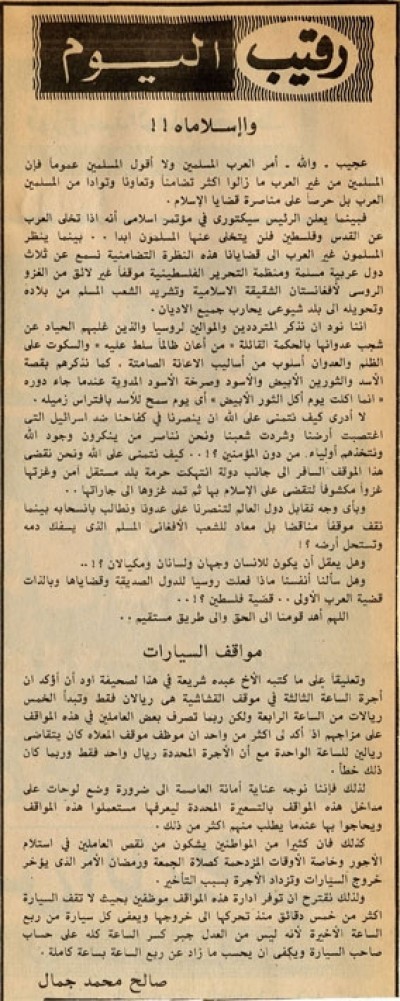 رقيب اليوم
وا إسلاماه !!
عجيب - والله - أمر العرب المسلمين ولا أقول المسلمين عموماً فإن
المسلمين من غير العرب ما زالوا اكثر تضامناً وتعاونا وتوادا من المسلمين
العرب بل حرصاً على مناصرة قضايا الإسلام .
فبينما يعلن الرئيس سيكتورى في مؤتمر اسلامى أنه اذا تخلى العرب
عن القدس وفلسطين فلن يتخلى عنها المسلمون ابدا .. بينما ينظر
المسلمون غير العرب الى قضايانا هذه النظرة التضامنية نسمع عن ثلاث
دول عربية مسلمة ومنظمة التحرير الفلسطينية موقفاً غير لائق من الغزو
الروسى لأفغانستان الشقيقة الاسلامية وتشريد الشعب المسلم من بلاده
وتحويله الى بلد شيوعى يحارب جميع الاديان .
اننا نود ان نذكر المترددين والموالين لروسيا والذين غلبهم الحياد عن
شجب عدوانها بالحكمة القائلة « من أعان ظالماً سلط عليه » والسكوت على
الظلم والعدوان أسلوب من أساليب الاعانة الصامتة ، كما نذكرهم بقصة
الأسد والثورين الأبيض والأسود وصرخة الأسود المدوية عندما جاء دوره
« انما اكلت يوم أكل الثور الأبيض » أى يوم سمح للأسد بافتراس زميله .
لا أدرى كيف نتمنى على الله ان ينصرنا في كفاحنا ضد اسرائيل التى
اغتصبت أرضنا وشردت شعبنا ونحن نناصر من ينكرون وجود الله
ونتخذهم أولياء من دون المؤمنين ؟! .. كيف نتمنى على الله ونحن نقضى
هذا الموقف السافر الى جانب دولة انتهكت حرمة بلد مستقل آمن وغزتها
غزواً مكشوفاً لتقضى على الإسلام بها ثم تمد غزوها الى جاراتها ..
وبأى وجه تقابل دول العالم لتنصرنا على عدونا ونطالب بانسحابه بينما
نقف موقفاً مناقضا بل معاد للشعب الأفغانى المسلم الذى يسفك دمه
وتستحل أرضه ؟!
وهل يعقل أن يكون للانسان وجهان ولسانان ومكيالان ؟! ..
وهل سألنا أنفسنا ماذا فعلت روسيا للدول الصديقة وقضاياها وبالذات
قضية العرب الأولى .. قضية فلسطين ؟! ..
اللهم أهد قومنا الى الحق والى طريق مستقيم ..
مواقف السيارات
وتعليقاً على ما كتبه الأخ عبده شريعة في هذا لصحيفة اود أن أؤكد ان
أجرة الساعة الثالثة في موقف القشاشية هى ريالان فقط وتبدأ الخمس
ريالات من الساعة الرابعة ولكن ربما تصرف بعض العاملين في هذه المواقف
على مزاجهم اذ أكد لى اكثر من واحد ان موظف موقف المعلاه كان يتقاضى
ريالين للساعة الواحدة مع أن الأجرة المحددة ريال واحد فقط وربما كان
ذلك خطأ .
لذلك فإننا نوجه عناية أمانة العاصمة الى ضرورة وضع لوحات على
مداخل هذه المواقف بالتسعيرة المحددة ليعرفها مستعملوا هذه المواقف
ويحاجوا بها عندما يطلب منهم اكثر من ذلك .
كذلك فان كثيرا من المواطنين يشكون من نقص العاملين في استلام
الأجور وخاصة الأوقات المزدحمة كصلاة الجمعة ورمضان الأمر الذى يؤخر
خروج السيارات وتزداد الأجرة بسبب التأخير .
ولذلك نقترح ان توفر ادارة هذه المواقف موظفين بحيث لا تقف السيارة
اكثر من خمس دقائق منذ تحركها الى خروجها ويعفى كل سيارة من ربع
الساعة الأخيرة لأنه ليس من العدل جبر كسر الساعة كله على حساب
صاحب السيارة ويكفى ان يحسب ما زاد عن ربع الساعة بساعة كاملة .
صالح محمد جمال